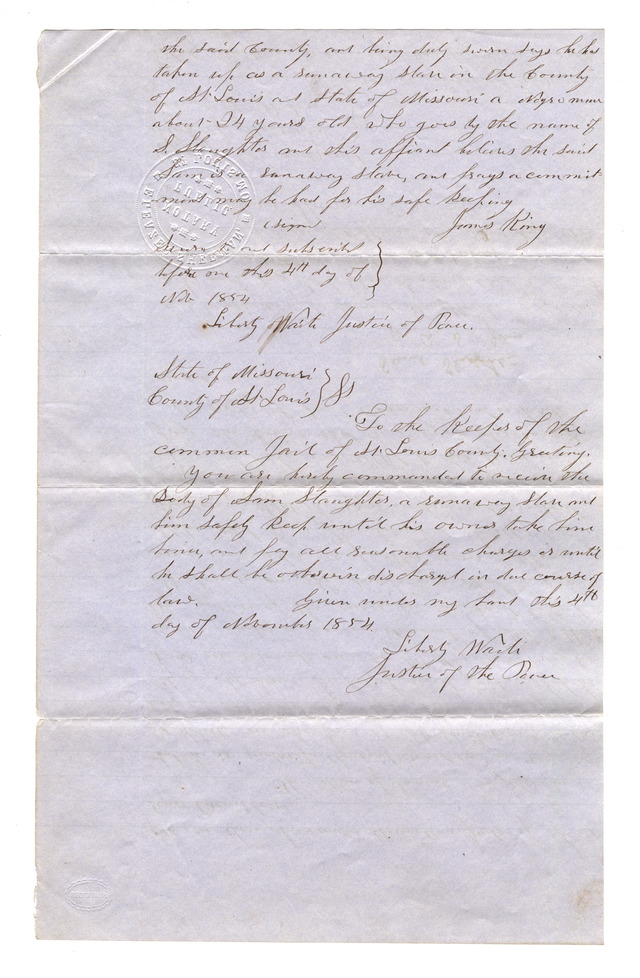 the said County, and being duly sworn says he has
taken up as a runaway slave in the County
of St Louis and State of Missouri a Negro man
about 24 years old who goes by the name of
S. Slaughter and this affiant believes the said
Sam is a runaway slave, and prays a commit
ment may be had for his safe keeping
(sign James King
Sworn and subscribed
before me this 4th day of
Nov 1854
Liberty Waite Justice of Peace.
State of Missouri
County of St Louis } SS
To the Keeper of the
common Jail of St Louis County. Greeting.
You are hereby commanded to receive the
Body of Sam Slaughter, a runaway slave and
him safely keep until his owner take him
hence, and pay all reasonable charges or until
he shall be otherwise discharged in due course of
law. Given under my hand this 4th
day of November 1854.
Liberty Waite
Justice of the Peace
NOTARY
PUBLIC